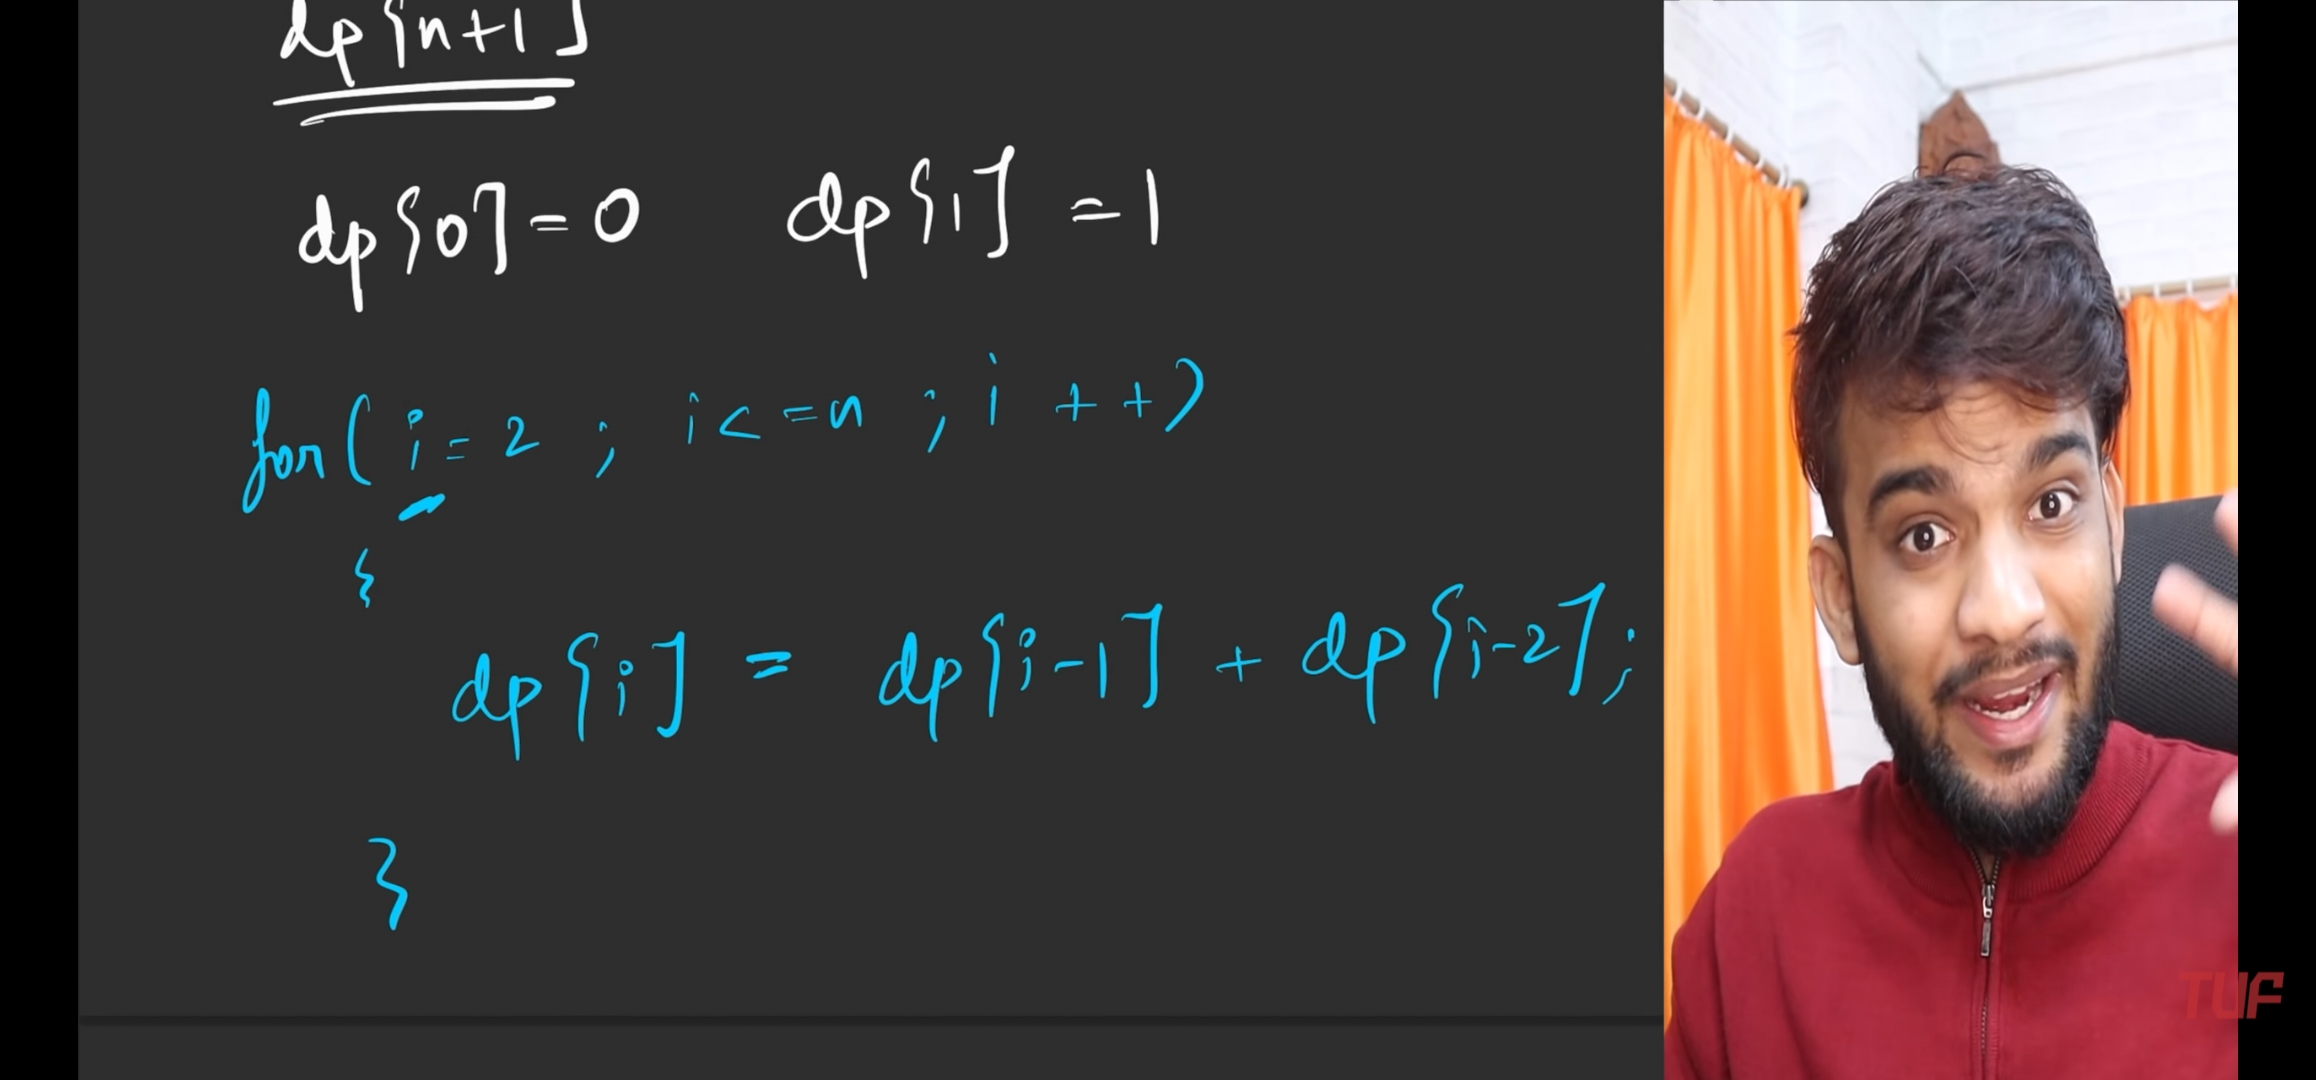 dp[n+1]
dp[0] = 0 dp[1] = 1
for( i = 2 ; i <= n ; i ++)
{
dp[i] = dp[i-1] + dp[i-2];
}
TUF